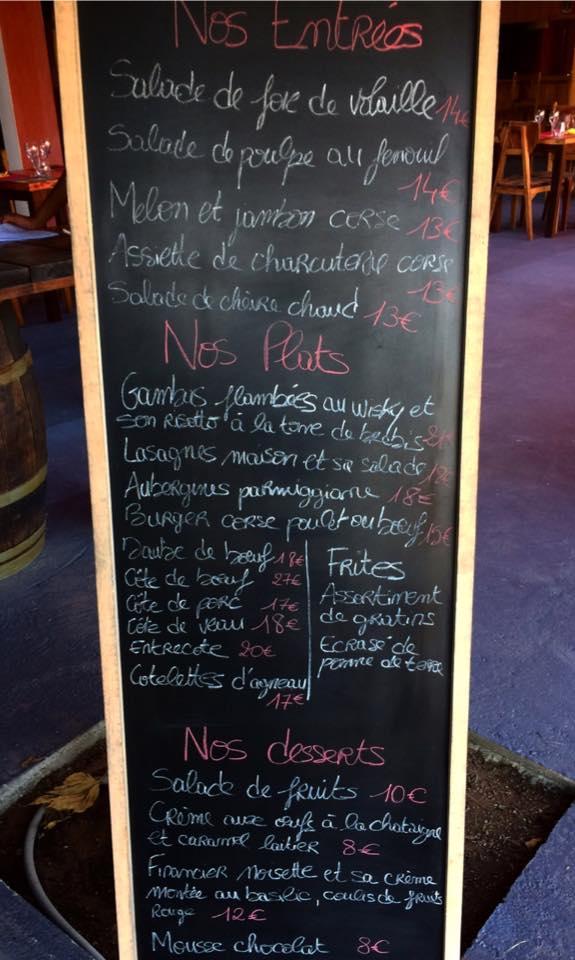 Nos Entrées
Salade de foie de volaille 14€
Salade de poulpe au fenouil
14€
Melon et jambon corse 13€
Assiette de charcuterie corse
13€
Salade de chèvre chaud 13€
Nos Plats
Gambas flambées au wisky et
son risotto à la tome de brebis
Lasagnes maison et sa salade
Aubergines parmiggiana 18€
Burger corse poulet ou bœuf 15€
Daube de bœuf 18€
Côte de bœuf 27€
Côte de porc 17€
Côte de veau 18€
Entrecote 20€
Cotelettes d'agneau
17€
Frites
Assortiment
de gratins
Ecrasé de
pomme de terre
Nos desserts
Salade de fruits 10€
Crème aux œufs à la chataigne
et caramel laitier 8€
Financier noisette et sa crème
montée au basilic, coulis de fruits
rouge 12€
Mousse chocolat 8€